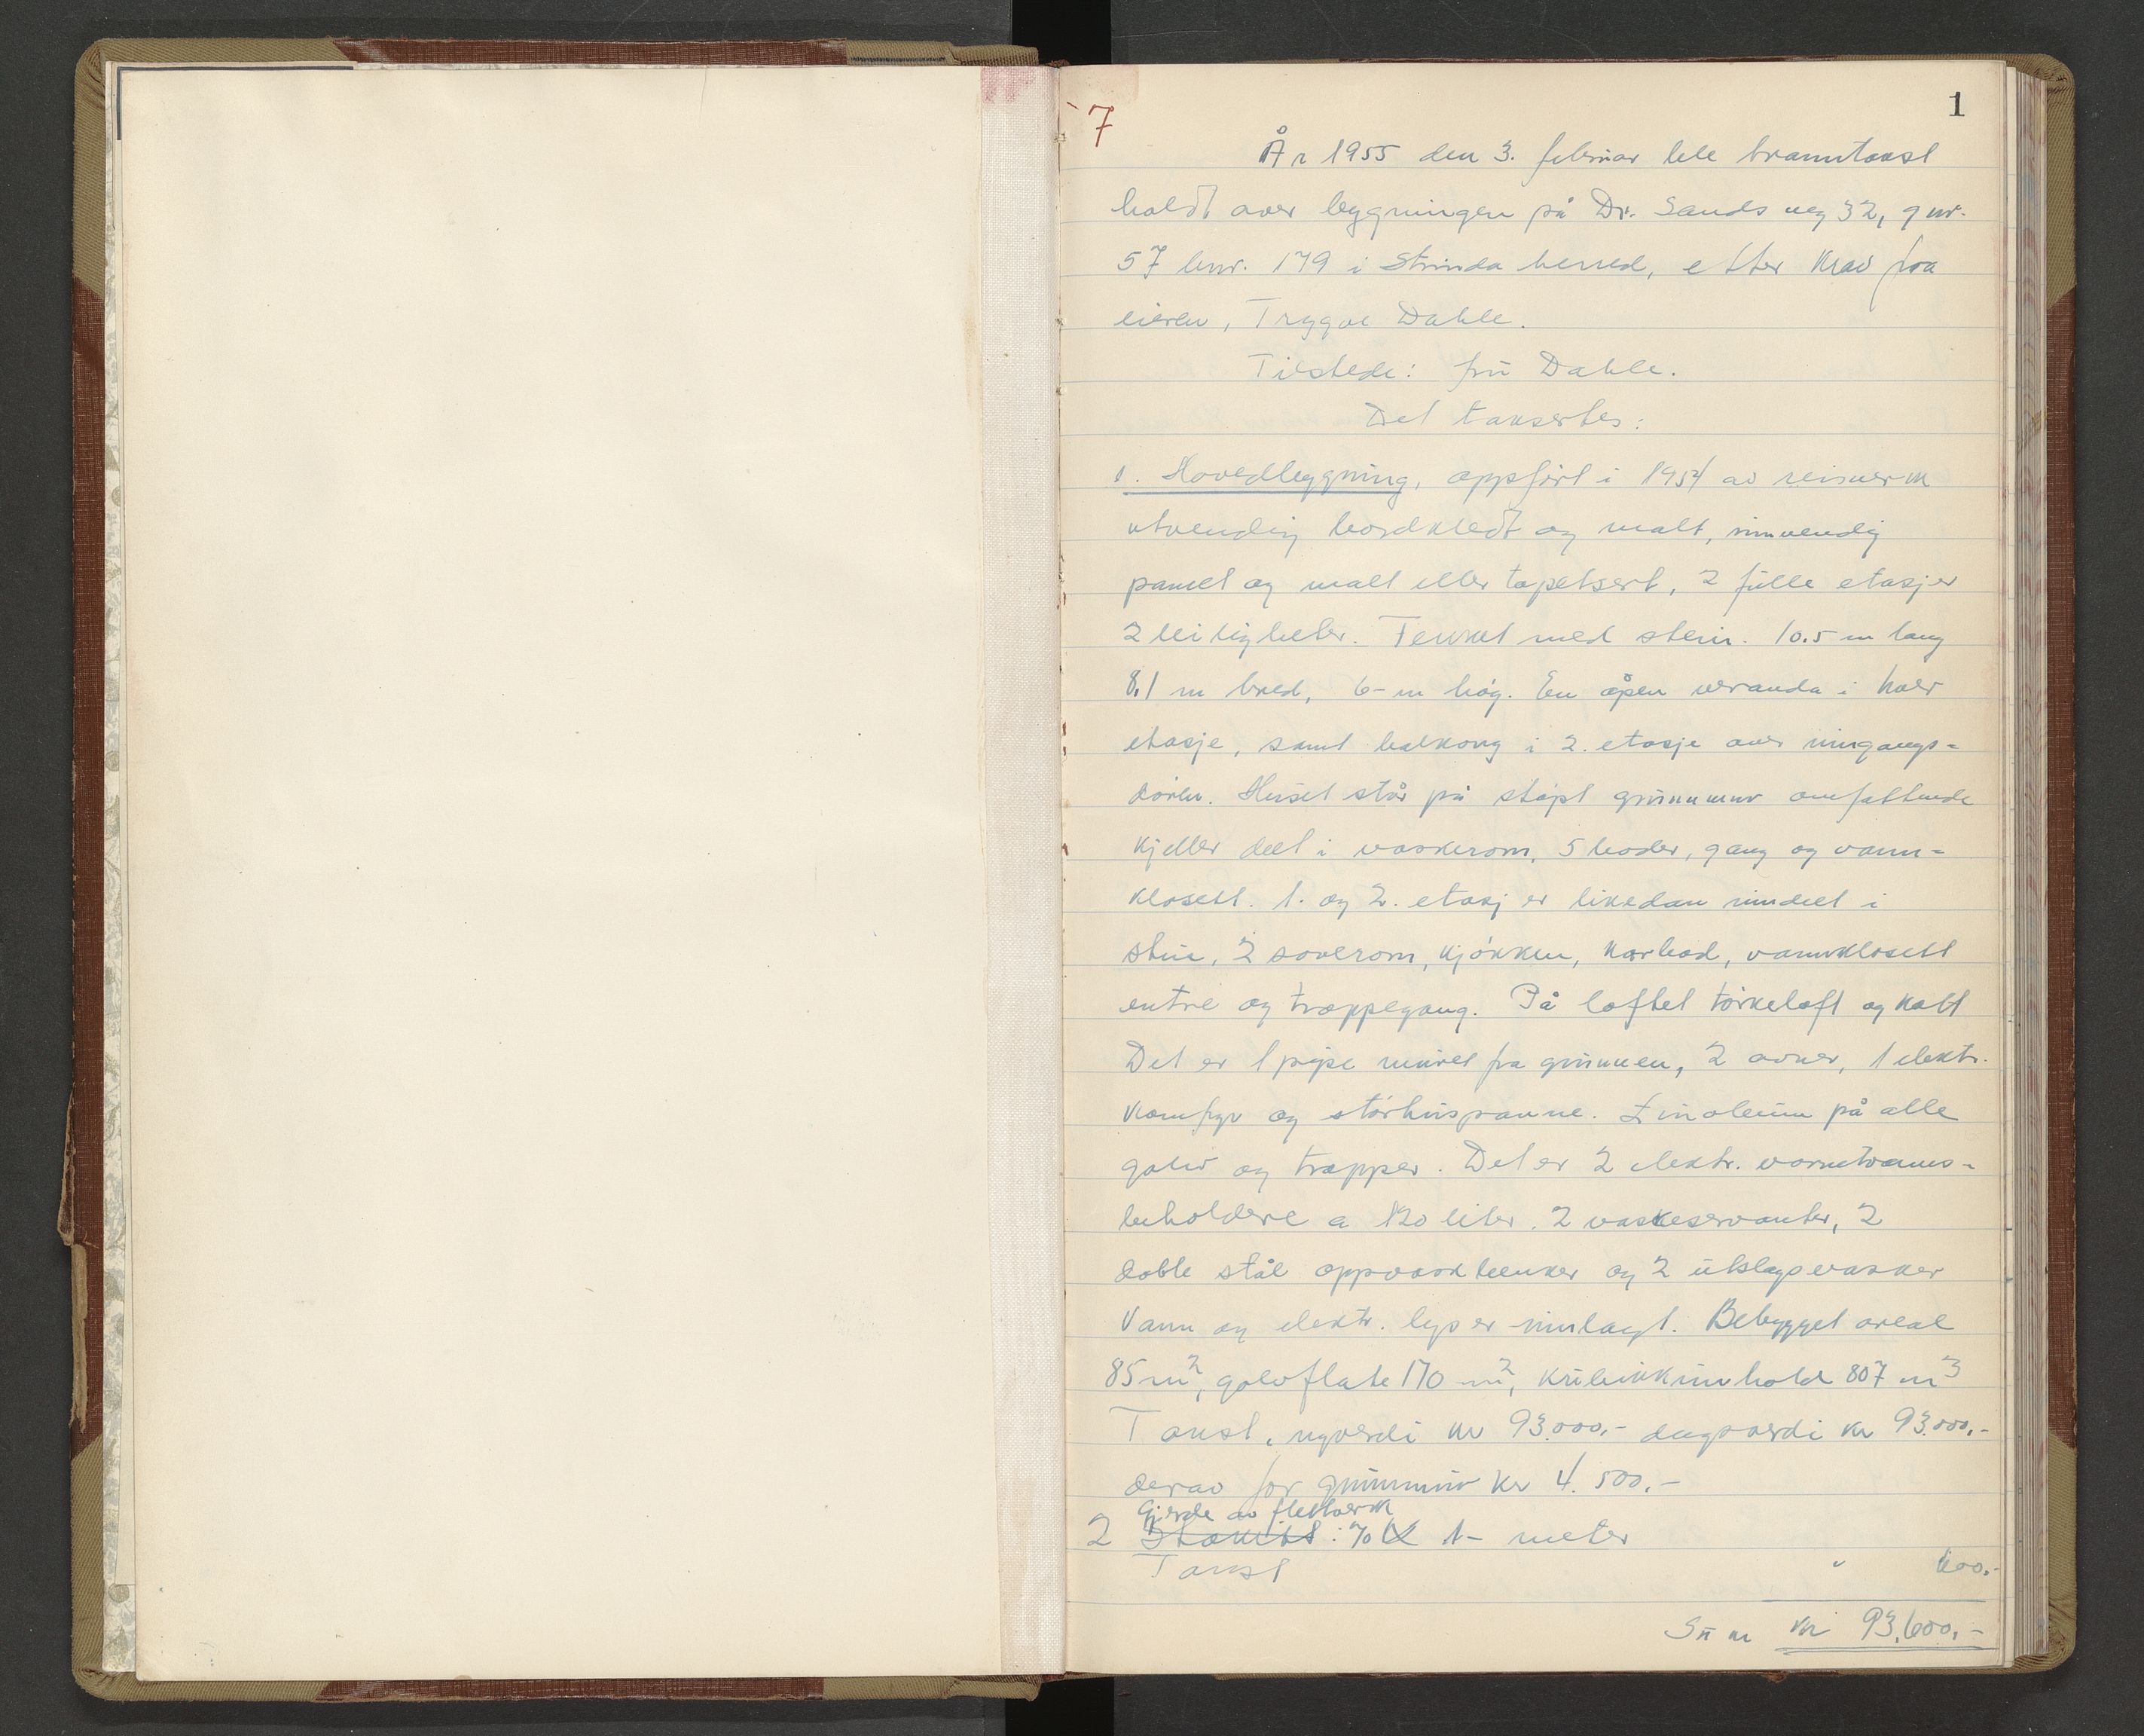 7
1
År 1955 den 3. februar ble branntakst
holdt over bygningen på Dr. Sands veg 32, gnr.
57 bnr. 179 i Strinda herred, etter krav fra
eieren, Trygve Dahle.
Tilstede: fru Dahle.
Det taksertes:
1. Hovedbygning, oppført i 1954 av reisverk
utvendig bordkledt og malt, innvendig
panelt og malt eller tapetsert, 2 fulle etasjer
2 leiligheter. Tekket med stein. 10.5 m lang
8,1 m bred, 6- m høg. En åpen veranda i hver
etasje, samt balkong i 2. etasje over inngangs-
døren. Huset står på støpt grunnmur omfattende
kjeller delt i vaskerom, 5 boder, gang og vann-
klosett. 1. og 2. etasj er likedan inndelt i
stue, 2 soverom, kjøkken, karbad, vannklosett
entre og trappegang. På loftet tørkeloft og kott
Det er 1 pipe muret fra grunnen, 2 ovner, 1 elektr.
komfyr og størhuspanne. Linoleum på alle
golv og trapper. Det er 2 elektr. varmtvanns-
beholdere a 120 liter. 2 vaskeservanter, 2
doble stål oppvaskbenker og 2 utslagsvasker
Vann og elektr. lys er innlagt. Bebygget areal
85 m², golvflate 170 m², kubikkinnhold 807 m³
Takst, nyverdi kr 93.000,- dagsverdi kr 93.000,-
derav for grunnmur kr 4.500.-
Gjerde av flettverk
2 Stakitt: 70 1- meter
Takst " 600.-
Sum kr 93.600.-